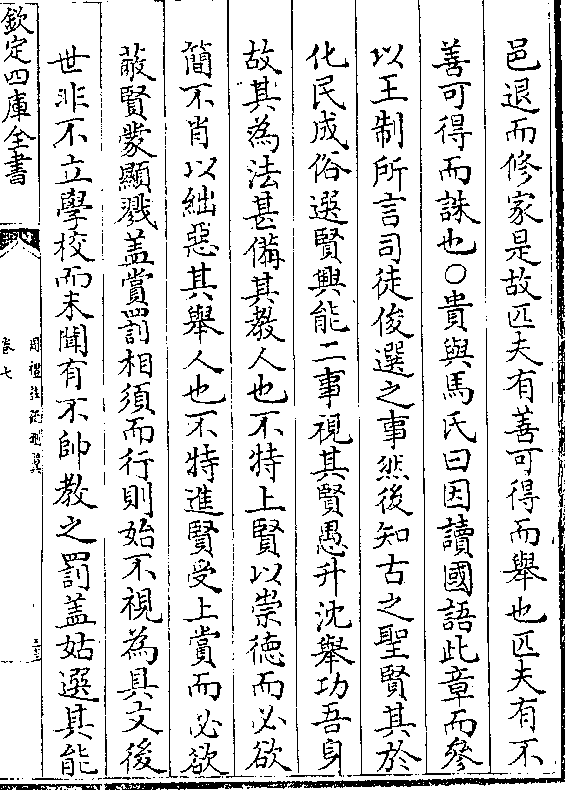 邑退而修家是故匹夫有善可得而舉也匹夫有不
善可得而誅也○貴與馬氏曰因讀國語此章而參
以王制所言司徒俊選之事然後知古之聖賢其於
化民成俗選賢興能二事視其賢愚升沈舉切吾身
故其為法甚備其教人也不特上賢以崇徳而必欲
簡不肖以絀惡其舉人也不特進賢受上賞而必欲
蔽賢蒙顯戮盖賞罰相須而行則始不視為具文後
世非不立學校而未聞有不帥教之罰盖姑選其能
欽定四庫全書
周禮註疏刪翼
卷七